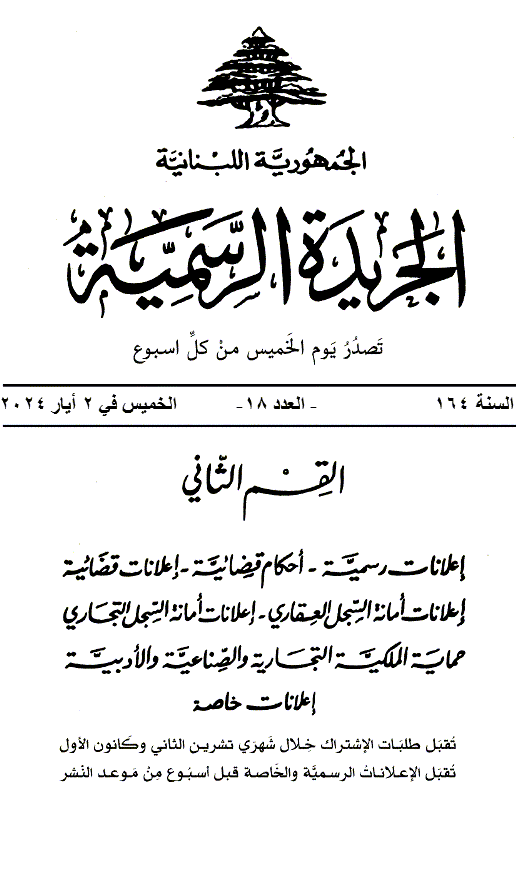 الجُمهُوريَّة اللبْنانيَّة
الجَريدَة الرسَّمِيَّة
تَصدُرُ يَوم الخَميس منْ كلِّ اسبوع
السنة ١٦٤ - العدد ١٨- الخميس في ٢ أيار ٢٠٢٤
القِسْم الثّاني
إعلانات رسميَّة - أحكام قضائيَّة - إعلانات قضائية
إعلانات أمانة السِّجل العقاري - إعلانات أمانة السِّجل التجاري
حماية الملكيَّة التجارية والصِّناعيَّة والأدبيَّة
إعلانات خاصة
تُقبَل طلبَات الإشتراك خِلال شَهرَي تشرين الثاني وكَانون الأول
تُقبَل الإعلاناتُ الرسميَّة والخَاصة قبل أسبُوع مِنْ مَوعد النَشر